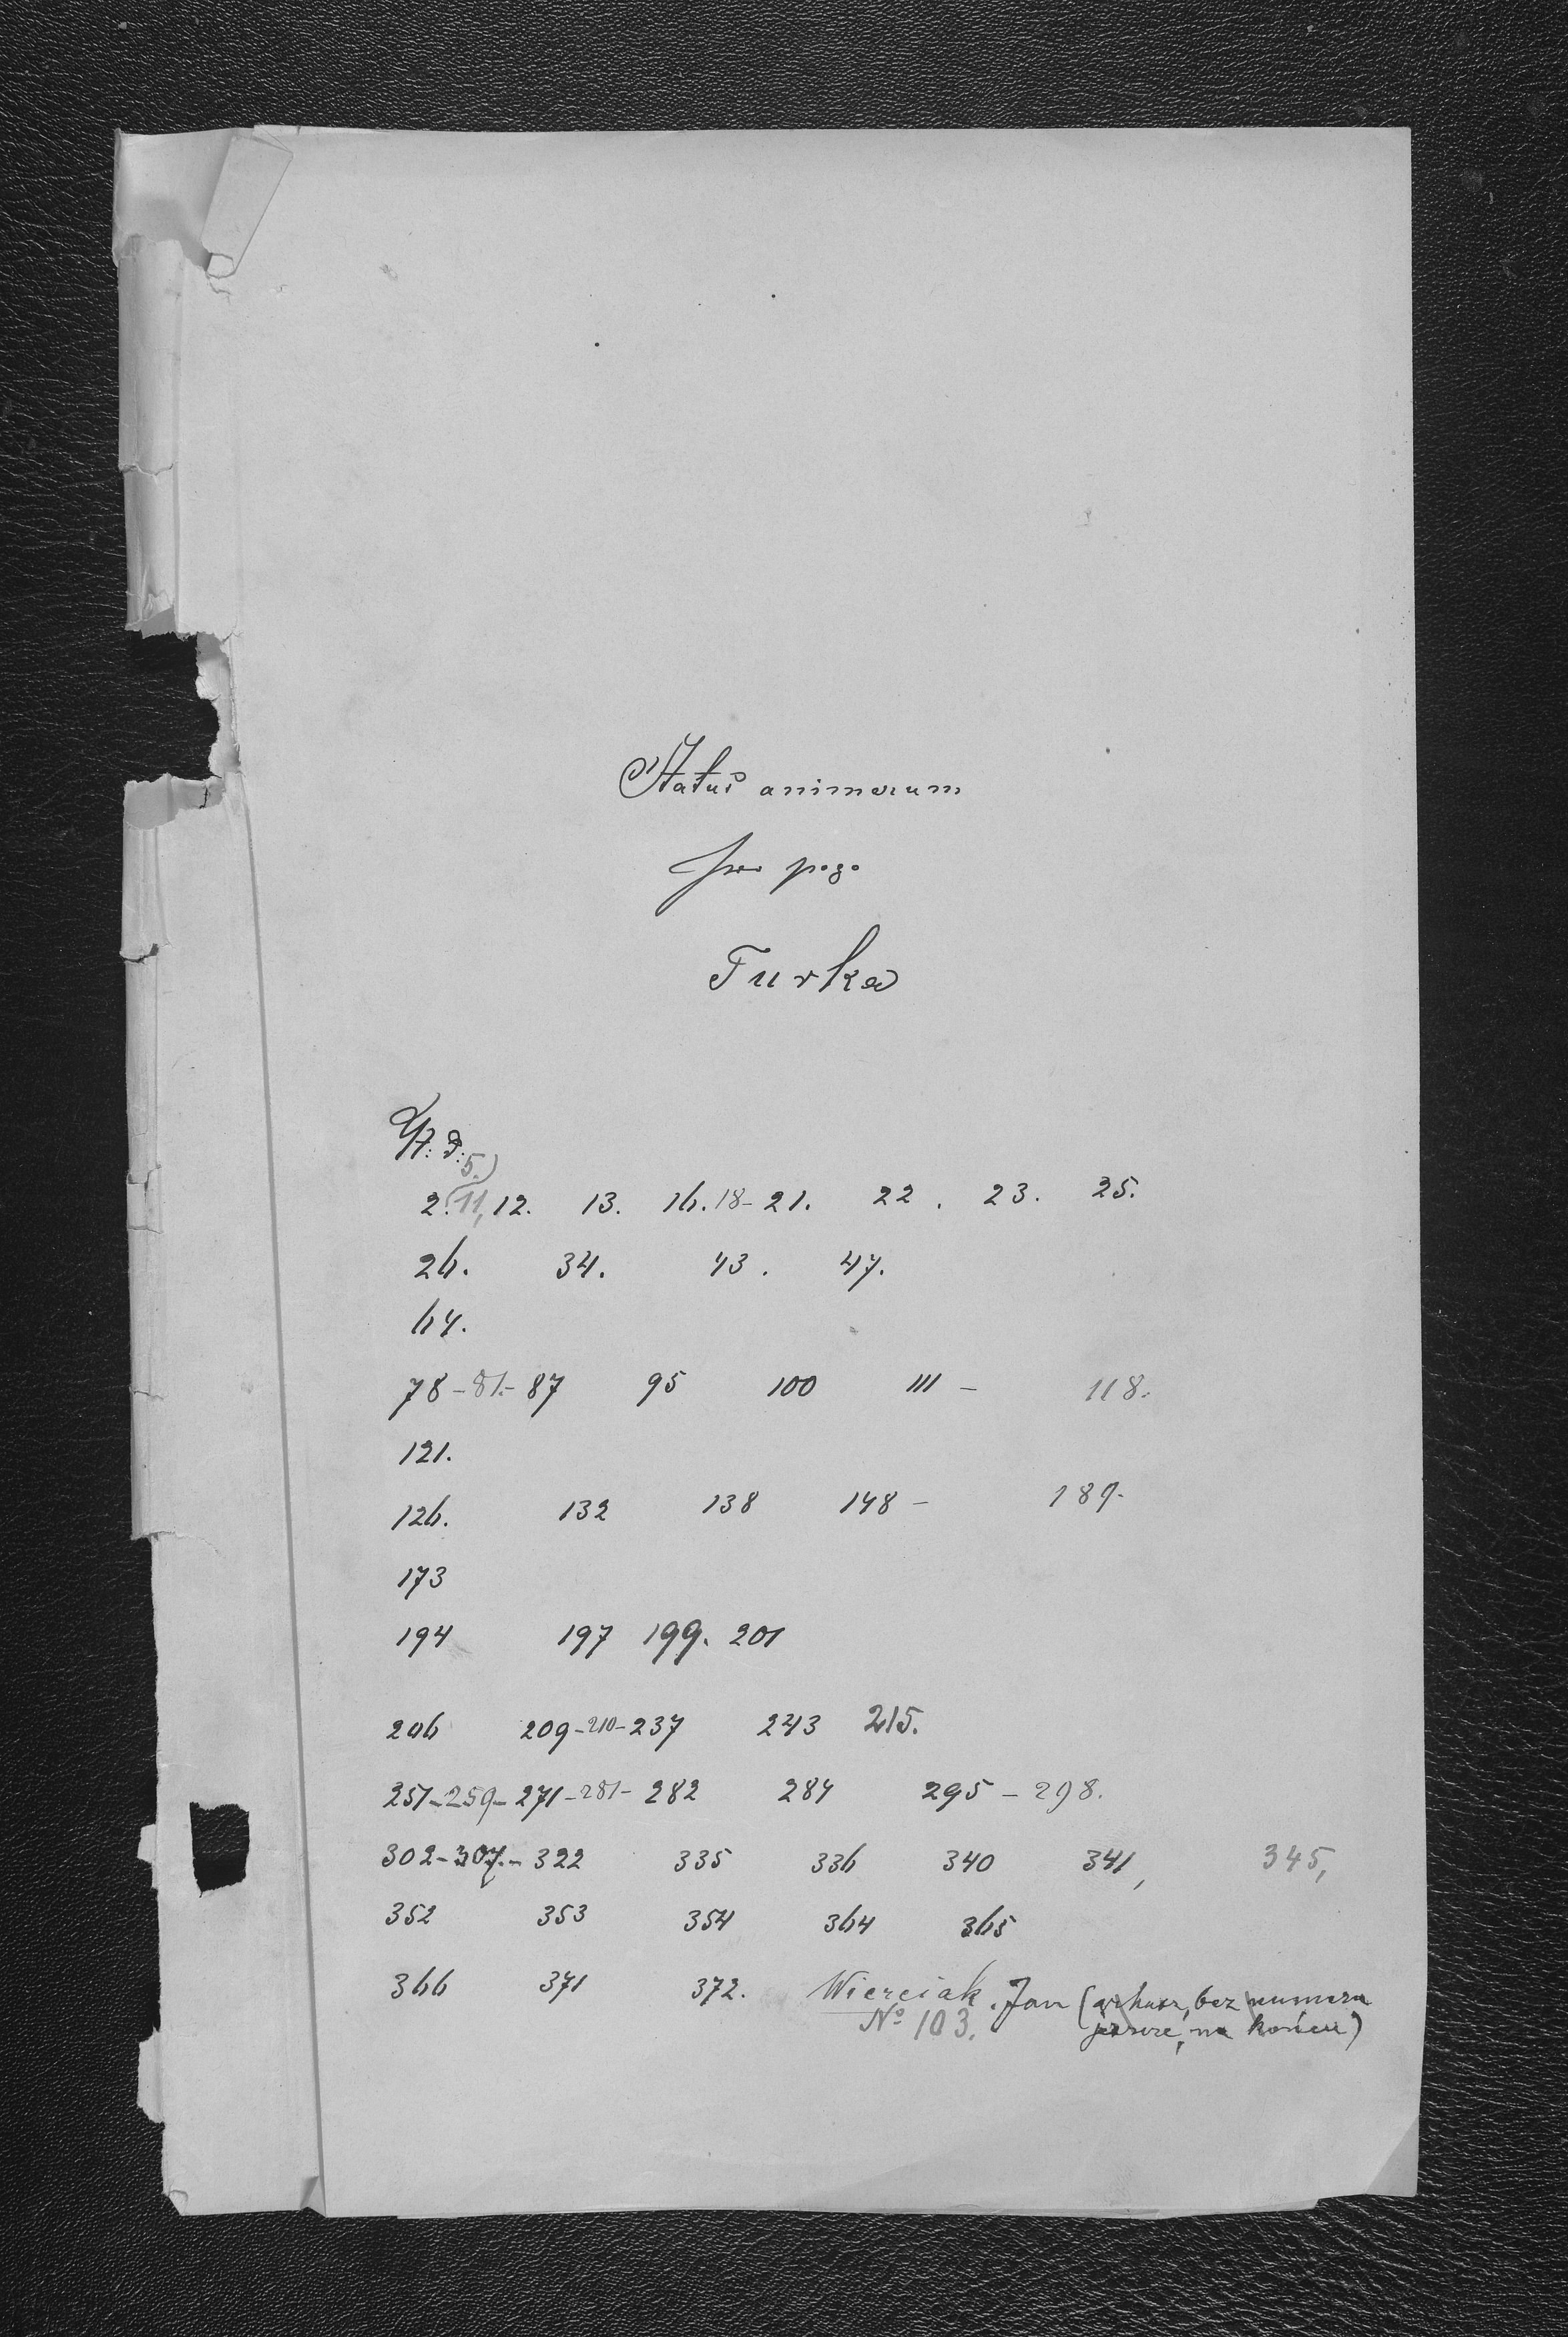 Status animarum
pro pago
Turka
N: d:
5.)
2.(11, 12. 13. 16. 18- 21. 22. 23. 25.
26. 34. 43. 47.
64.
78 - 81.- 87 95 100 111 - 118.
121.
126. 132 138 148 - 189.
173
194 197 199. 201
206 209-210-237 243 215.
251-259-271-281-282 284 295 - 298.
302-307.-322 335 336 340 341, 345,
352 353 354 364 365
366 371 372. Wierciak Jan (arkusz, bez numeru
No 103. jeszcze, na końcu)